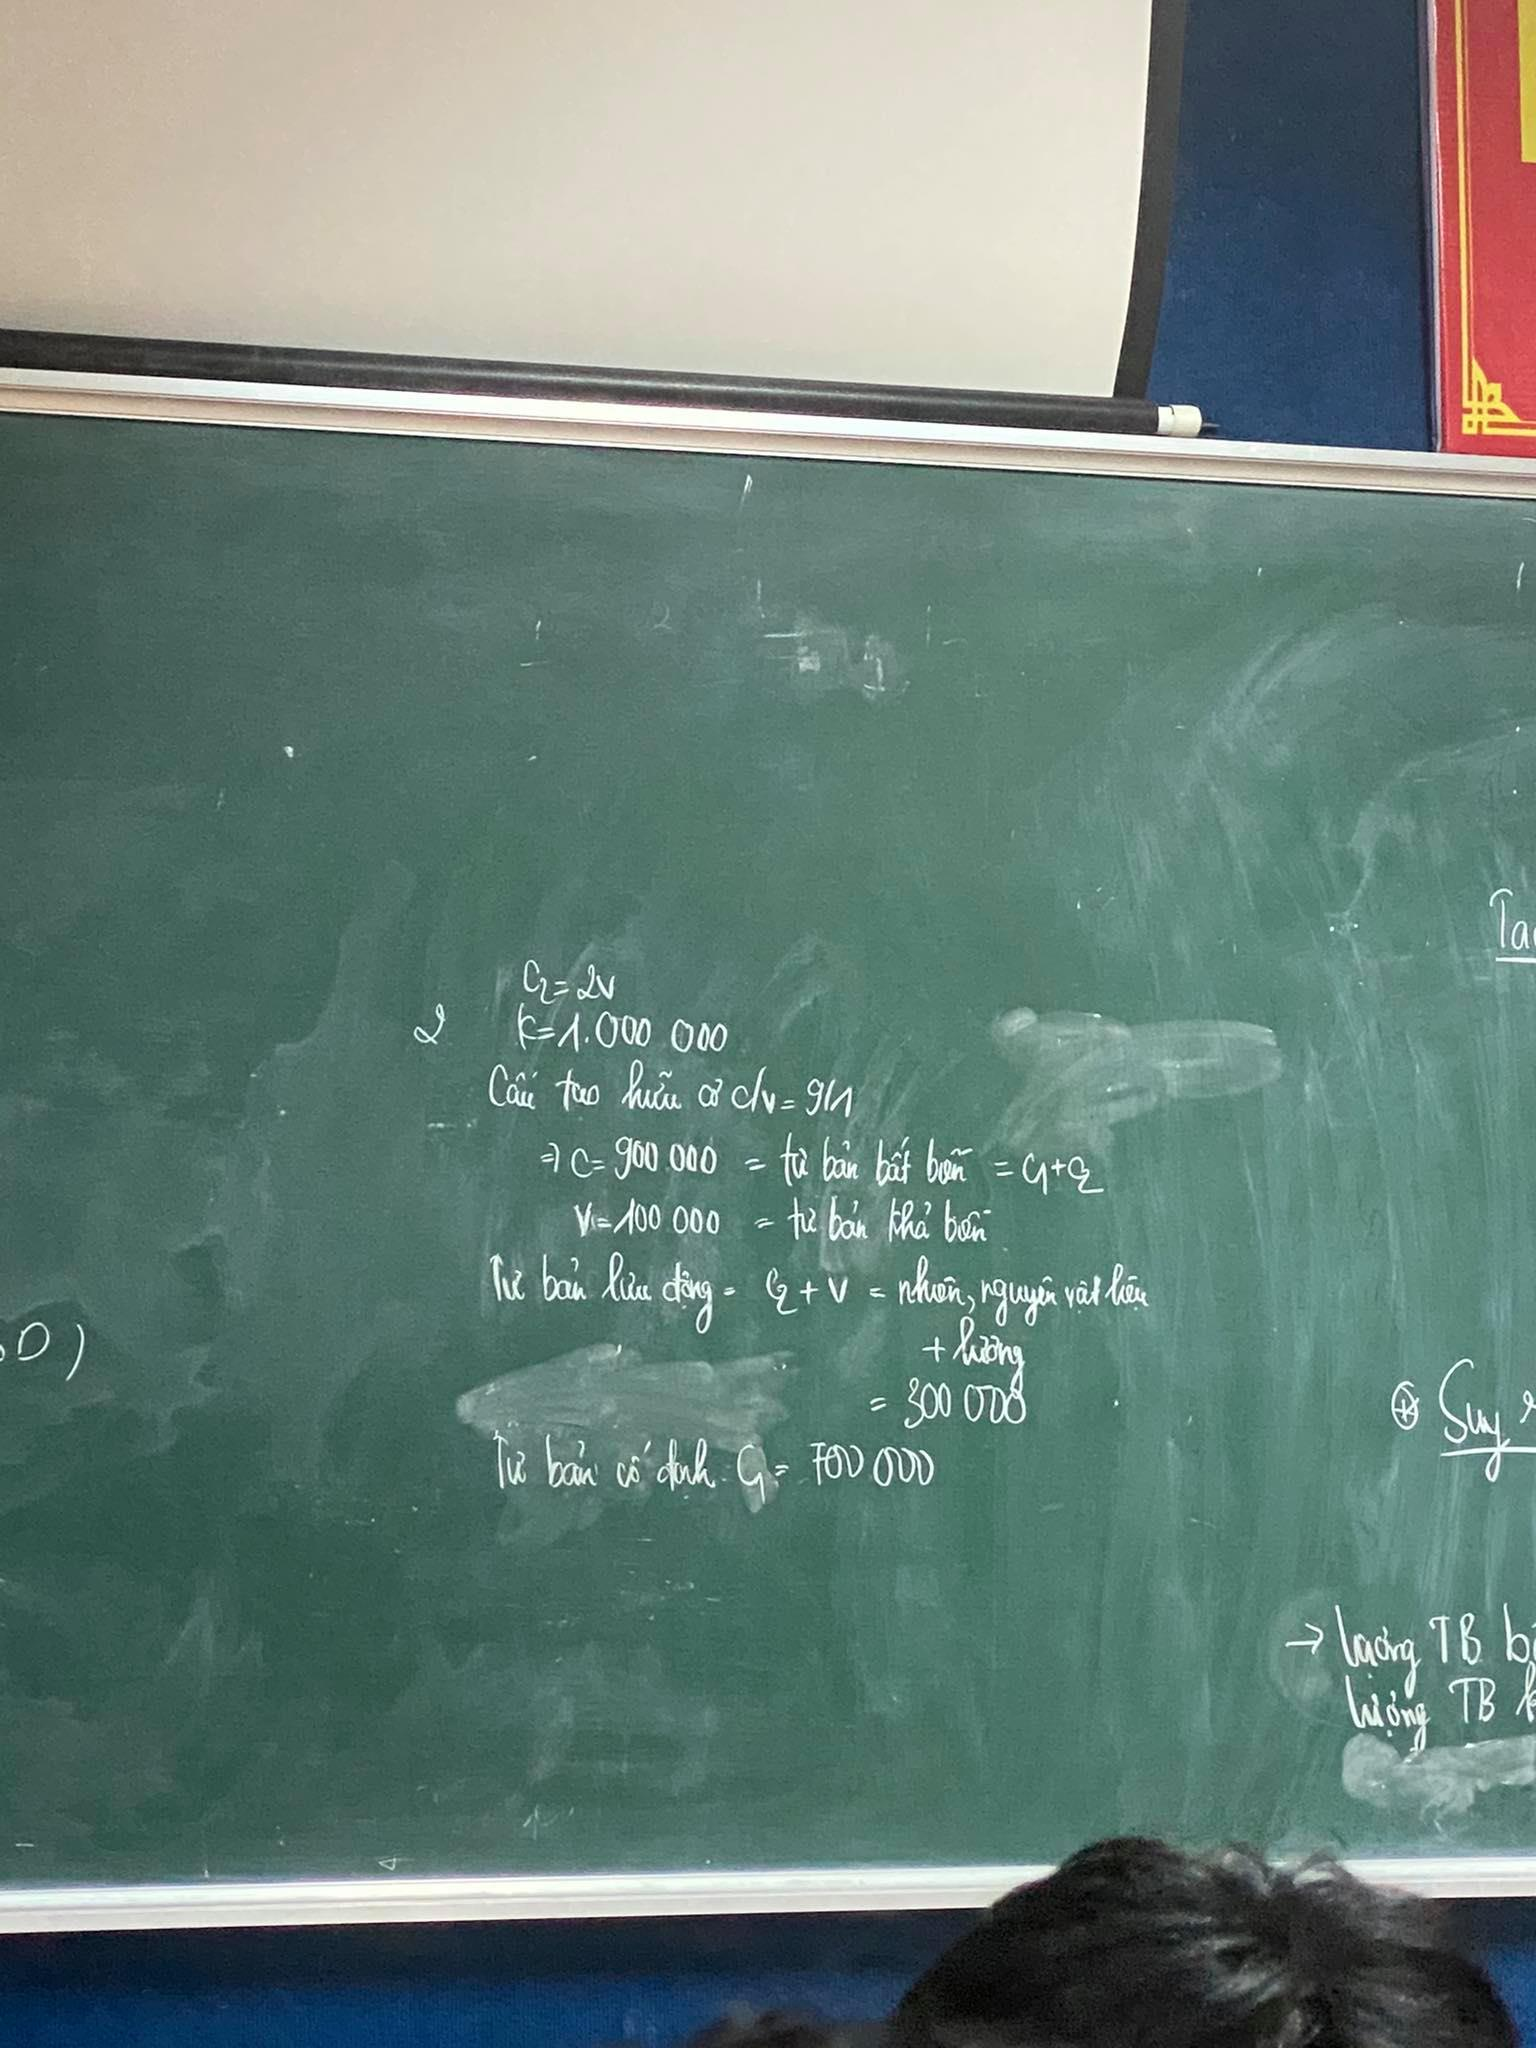 C2 = 2v
2 K = 1.000 000
Cấu tạo hữu cơ c/v = 9/1
⇒ C = 900 000 = tư bản bất biến = C1 + C2
V = 100 000 = tư bản khả biến
Tư bản lưu động = C2 + V = nhiên, nguyên vật liệu
+ lương
= 300 000
Tư bản cố định C1 = 700 000
D)
⊕ Suy
→ lượng TB b
lượng TB k